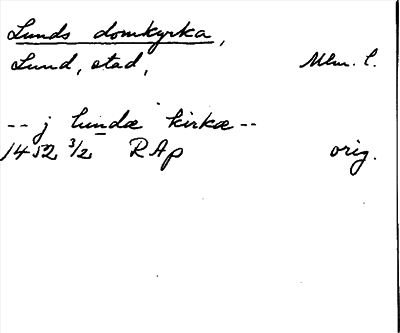 Lunds domkyrka,
Lund, stad, Mlm. l.
-- j lundæ kirkæ --
1452 3/2 RAp orig.